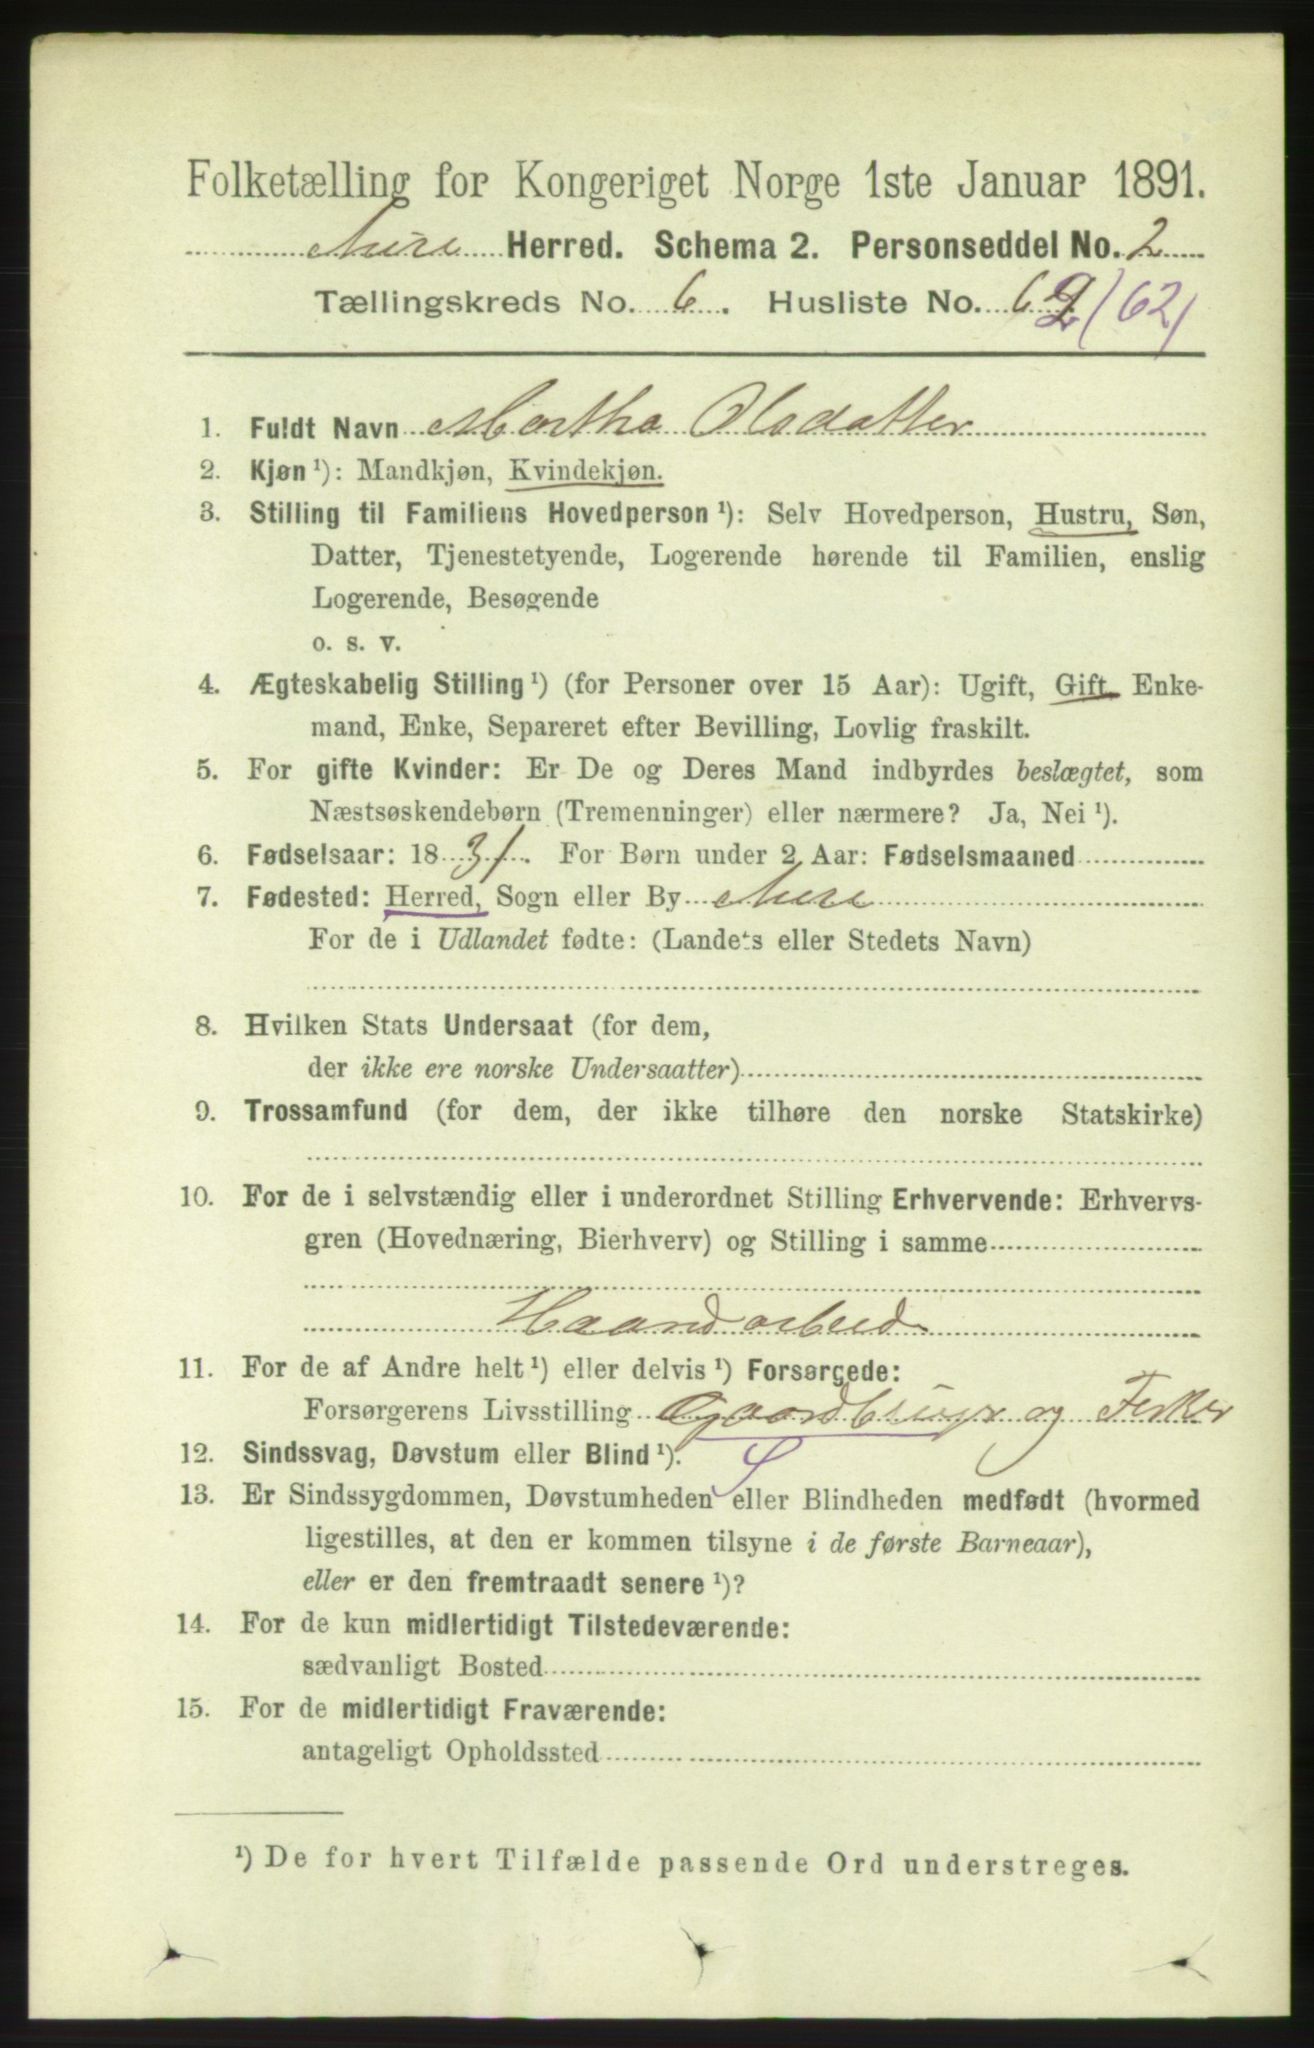 Folketælling for Kongeriget Norge 1ste Januar 1891.
Aure Herred. Schema 2. Personseddel No. 2
Tællingskreds No. 6. Husliste No. 62 (62)
1. Fuldt Navn Martha Olsdatter
2. Kjøn ¹): Mandkjøn, Kvindekjøn.
3. Stilling til Familiens Hovedperson ¹): Selv Hovedperson, Hustru, Søn,
Datter, Tjenestetyende, Logerende hørende til Familien, enslig
Logerende, Besøgende
o. s. v.
4. Ægteskabelig Stilling ¹) (for Personer over 15 Aar): Ugift, Gift, Enke-
mand, Enke, Separeret efter Bevilling, Lovlig fraskilt.
5. For gifte Kvinder: Er De og Deres Mand indbyrdes beslægtet, som
Næstsøskendebørn (Tremenninger) eller nærmere? Ja, Nei ¹).
6. Fødselsaar: 1831. For Børn under 2 Aar: Fødselsmaaned
7. Fødested: Herred, Sogn eller By Aure
For de i Udlandet fødte: (Landets eller Stedets Navn)
8. Hvilken Stats Undersaat (for dem,
der ikke ere norske Undersaatter)
9. Trossamfund (for dem, der ikke tilhøre den norske Statskirke)
10. For de i selvstændig eller i underordnet Stilling Erhvervende: Erhvervs-
gren (Hovednæring, Bierhverv) og Stilling i samme
Haandarbeid
11. For de af Andre helt ¹) eller delvis ¹) Forsørgede:
Forsørgerens Livsstilling Gaardbruger og Fisker
12. Sindssvag, Døvstum eller Blind ¹).
13. Er Sindssygdommen, Døvstumheden eller Blindheden medfødt (hvormed
ligestilles, at den er kommen tilsyne i de første Barneaar),
eller er den fremtraadt senere ¹)?
14. For de kun midlertidigt Tilstedeværende:
sædvanligt Bosted
15. For de midlertidigt Fraværende:
antageligt Opholdssted
¹) De for hvert Tilfælde passende Ord understreges.